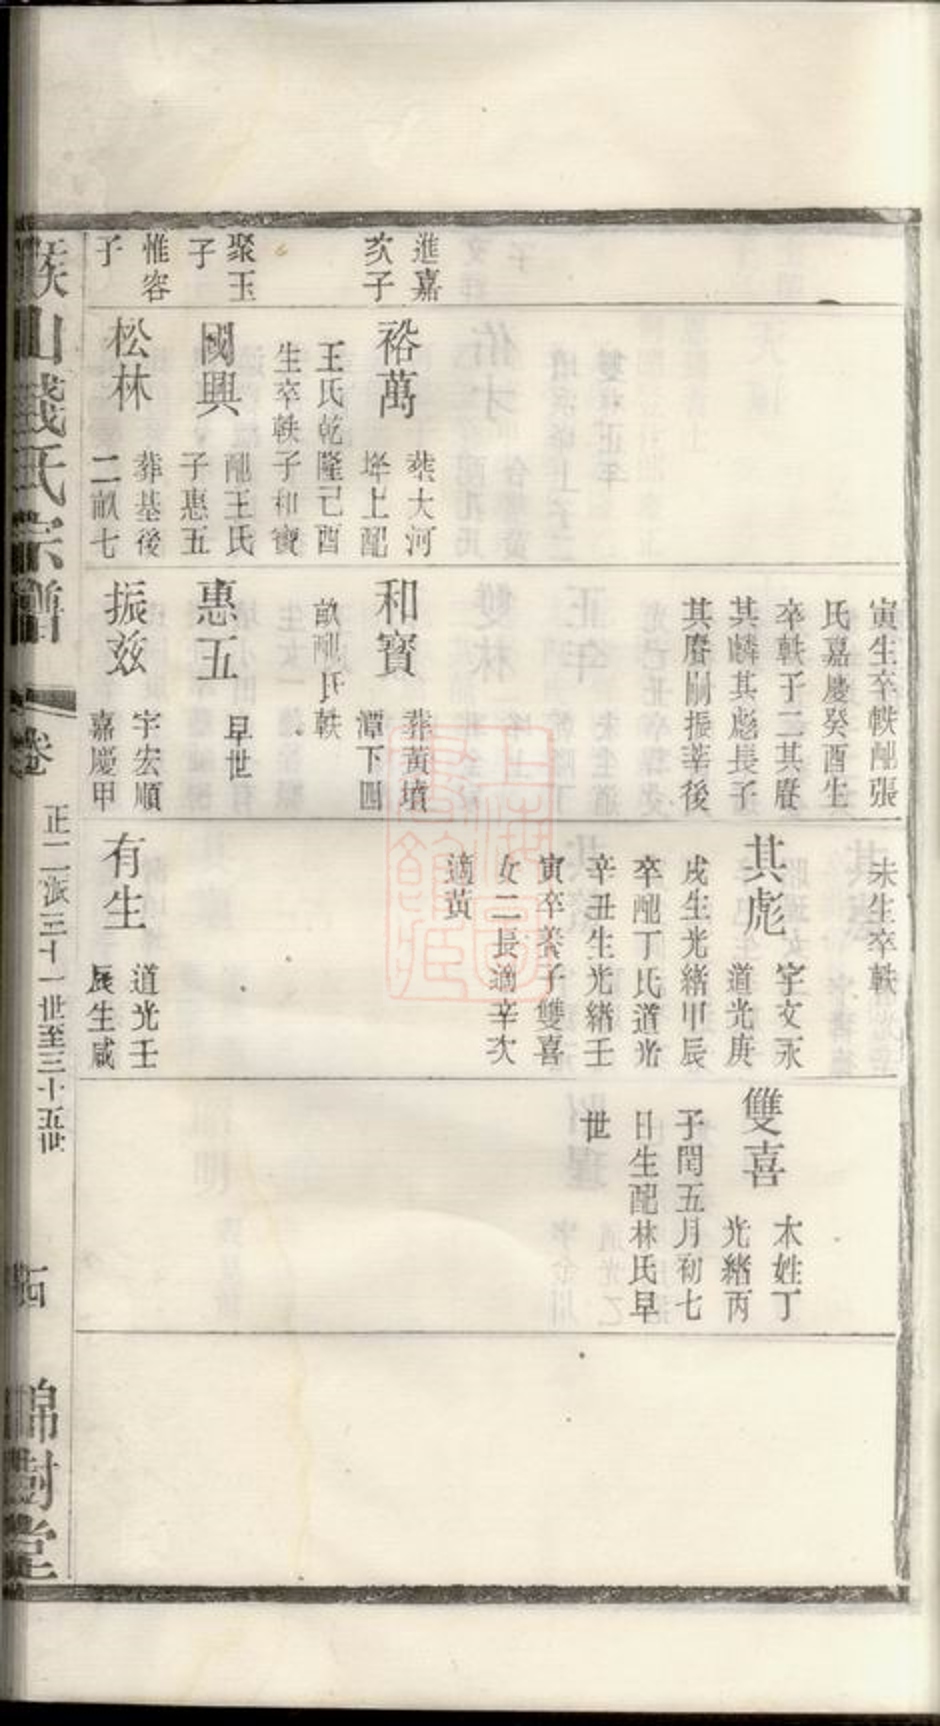 進嘉
次子
聚玉
子
惟容
子
裕萬
葬大河
墿上配
王氏乾隆己酉
生卒軼子和寶
國興
配王氏
子惠五
松林
葬基後
二畝七
寅生卒軼配張
氏嘉慶癸酉生
卒軼子三其賡
其麟其彪長子
其賡嗣振莘後
和寶
葬黃墳
潭下四
畝配氏軼
惠五
早世
振玆
字宏順
嘉慶甲
未生卒軼
其彪
字文永
道光庚
戌生光緒甲辰
卒配丁氏道光
辛丑生光緒壬
寅卒養子雙喜
女二長適辛次
適黃
有生
道光壬
辰生咸
雙喜
本姓丁
光緒丙
子閏五月初七
日生配林氏早
世
山錢氏宗譜
卷
正二派三十一世至三十五世
四
錦樹堂
上海圖書館藏